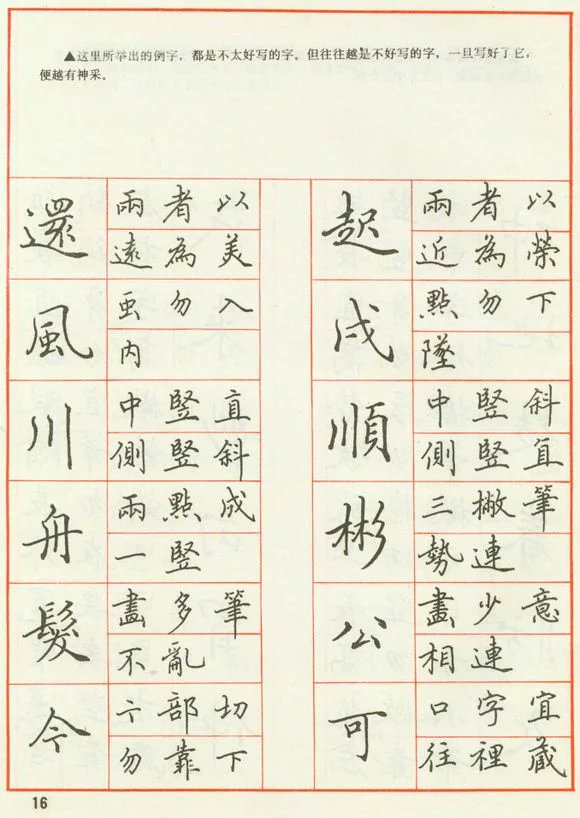 ▲这里所举出的例字，都是不太好写的字。但往往越是不好写的字，一旦写好了它，
便越有神采。
還
兩者以
遠為美
風
虫勿入
內
川
中豎直
側豎斜
舟
兩點成
一豎
髮
畫多筆
不亂
今
部切
勿靠下
起
兩者以
近為榮
戍
點勿下
墜
順
中豎斜
側豎直
彬
三撇筆
勢連
公
畫少意
相連
可
口字宜
往裡藏
16